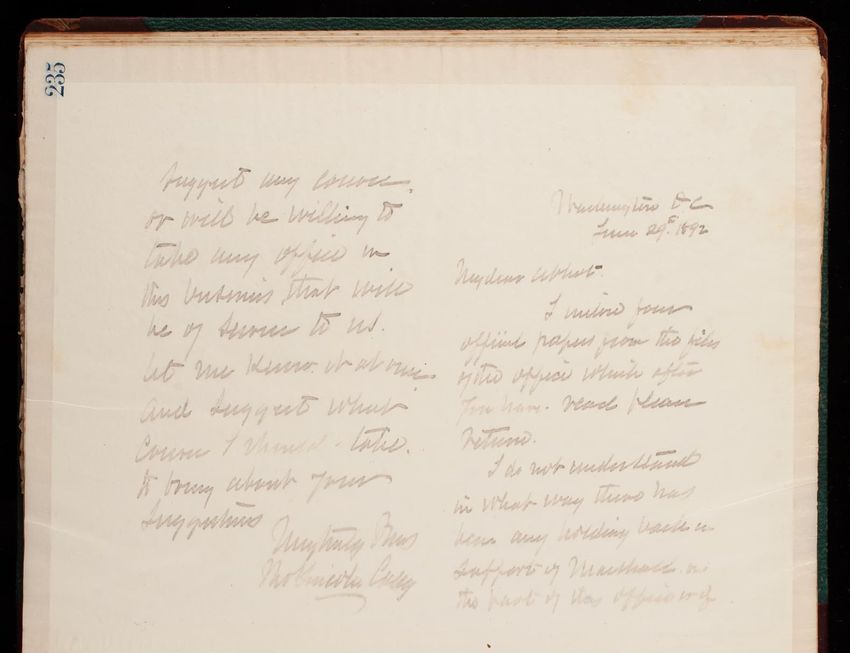 235
suggest any course,
or will be willing to
take any office in
this business that will
be of service to us.
let me know it at once
and suggest what
course I should take.
to bring about your
suggestions
Thos Lincoln Casey
Washington DC
June 29th 1892
My dear Abbot.
I inclose four
official papers from the files
of the office which after
you have read please
return.
I do not understand
in what way there has
been any holding back in
support of Marshall in
the part of this office or of